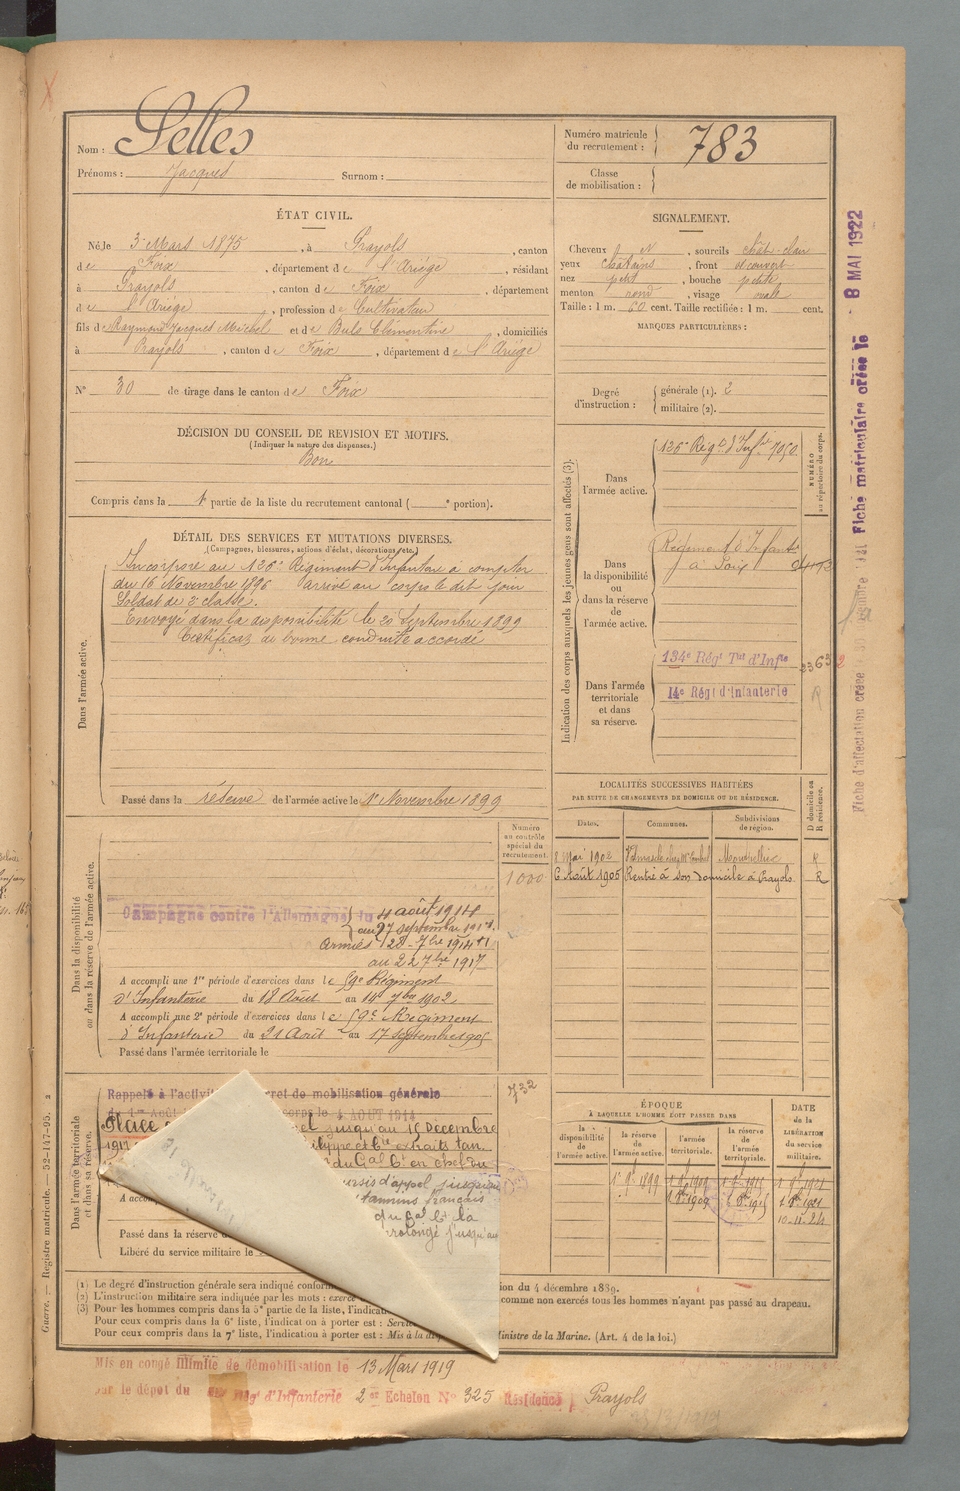 Nom : Selles
Prénoms : Jacques Surnom :
Numéro matricule du recrutement : 783
Classe de mobilisation :
ÉTAT CIVIL.
Né le 3 Mars 1875, à Prayols, canton
de Foix, département de l'Ariège, résidant
à Prayols, canton de Foix, département
de l'Ariège, profession de Cultivateur
fils de Raymond Jacques Michel et de Clémentine, domiciliés
à Prayols, canton de Foix, département de l'Ariège
N° 30 de tirage dans le canton de Foix
DÉCISION DU CONSEIL DE REVISION ET MOTIFS.
(Indiquer la nature des dispenses.)
Bon
Compris dans la 1e partie de la liste du recrutement cantonal ( e portion).
SIGNALEMENT.
Cheveux, sourcils chât. clair
yeux châtains, front découvert
nez petit, bouche petite
menton rond, visage ovale
Taille : 1 m. 60 cent. Taille rectifiée : 1 m. cent.
MARQUES PARTICULIÈRES :
Degré d'instruction : générale (1). 2
militaire (2).
DÉTAIL DES SERVICES ET MUTATIONS DIVERSES.
(Campagnes, blessures, actions d'éclat, décorations, etc.)
Dans l'armée active.
Incorporé au 126e Régiment d'Infanterie à compter
du 16 Novembre 1896 arrivé au corps le dit jour
Soldat de 2e classe.
Envoyé dans la disponibilité le 20 Septembre 1899
Certificat de bonne conduite accordé
Passé dans la réserve de l'armée active le 1er Novembre 1899
Indication des corps auxquels les jeunes gens sont affectés (3).
NUMÉRO au répertoire du corps.
Dans l'armée active.
126e Régt d'Infie 7050
Dans la disponibilité ou dans la réserve de l'armée active.
Régiment d'Infanterie
à Foix
Dans l'armée territoriale et dans sa réserve.
134e Régt Tal d'Infie
14e Régt d'Infanterie
LOCALITÉS SUCCESSIVES HABITÉES
PAR SUITE DE CHANGEMENTS DE DOMICILE OU DE RÉSIDENCE.
Dates. Communes. Subdivisions de région. D domicile ou R résidence.
2 Mai 1902 Montpellier R
6 Août 1905 Rentré à son domicile à Prayols R
Dans la disponibilité ou dans la réserve de l'armée active.
Numéro au contrôle spécial du recrutement.
1000
Campagne contre l'Allemagne du 4 août 1914
au 27 septembre 1914
Armées 28 7bre 1914
au 22 7bre 1917
A accompli une 1re période d'exercices dans le 59e Régiment
d'Infanterie du 18 Août au 14 7bre 1902
A accompli une 2e période d'exercices dans le 59e Régiment
d'Infanterie du 21 Août au 17 septembre 1905
Passé dans l'armée territoriale le
Dans l'armée territoriale et dans sa réserve.
732
Rappelé à l'activité
de mobilisation générale
du 1er Août
corps le 4 AOUT 1914
Placé
jusqu'au 15 Décembre
1917
extraits tan
du Gal Ct en chef du
sursis d'appel jusqu'au
tannins français
du Gal Ct la
prolongé jusqu'au
Passé dans la réserve
Libéré du service militaire le
ÉPOQUE
À LAQUELLE L'HOMME DOIT PASSER DANS
la disponibilité de l'armée active.
la réserve de l'armée active.
l'armée territoriale.
la réserve de l'armée territoriale.
DATE de la LIBÉRATION du service militaire.
10-11-24
(1) Le degré d'instruction générale sera indiqué
4 décembre 1889.
(2) L'instruction militaire sera indiquée par les mots : exercé
comme non exercés tous les hommes n'ayant pas passé au drapeau.
(3) Pour les hommes compris dans la 5e partie de la liste,
Pour ceux compris dans la 6e liste, l'indication à porter est :
Pour ceux compris dans la 7e liste, l'indication à porter est : Mis à la
Ministre de la Marine. (Art. 4 de la loi.)
Mis en congé illimité de démobilisation le 13 Mars 1919
par le dépôt du Régt d'Infanterie 2e Echelon N° 325 Résidence Prayols
Guerre. — Registre matricule. — 52-147-95. 2
Fiche matriculaire créée le 8 MAI 1922
Fiche d'affectation créée le